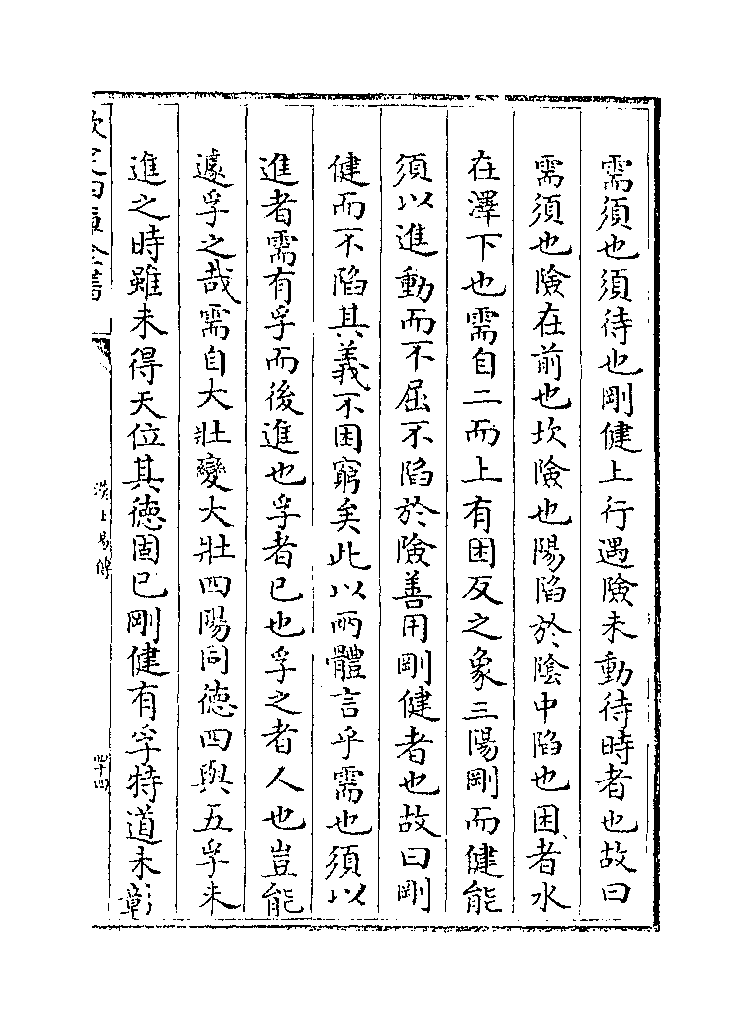 需須也須待也剛健上行遇險未動待時者也故曰
需須也險在前也坎險也陽陷於陰中陷也困者水
在澤下也需自二而上有困反之象三陽剛而健能
須以進動而不屈不陷於險善用剛健者也故曰剛
健而不陷其義不困窮矣此以兩體言乎需也須以
進者需有孚而後進也孚者已也孚之者人也豈能
遽孚之哉需自大壯變大壯四陽同德四與五孚未
進之時雖未得天位其德固已剛健有孚特道未彰
欽定四庫全書
漢上易傳
四十四